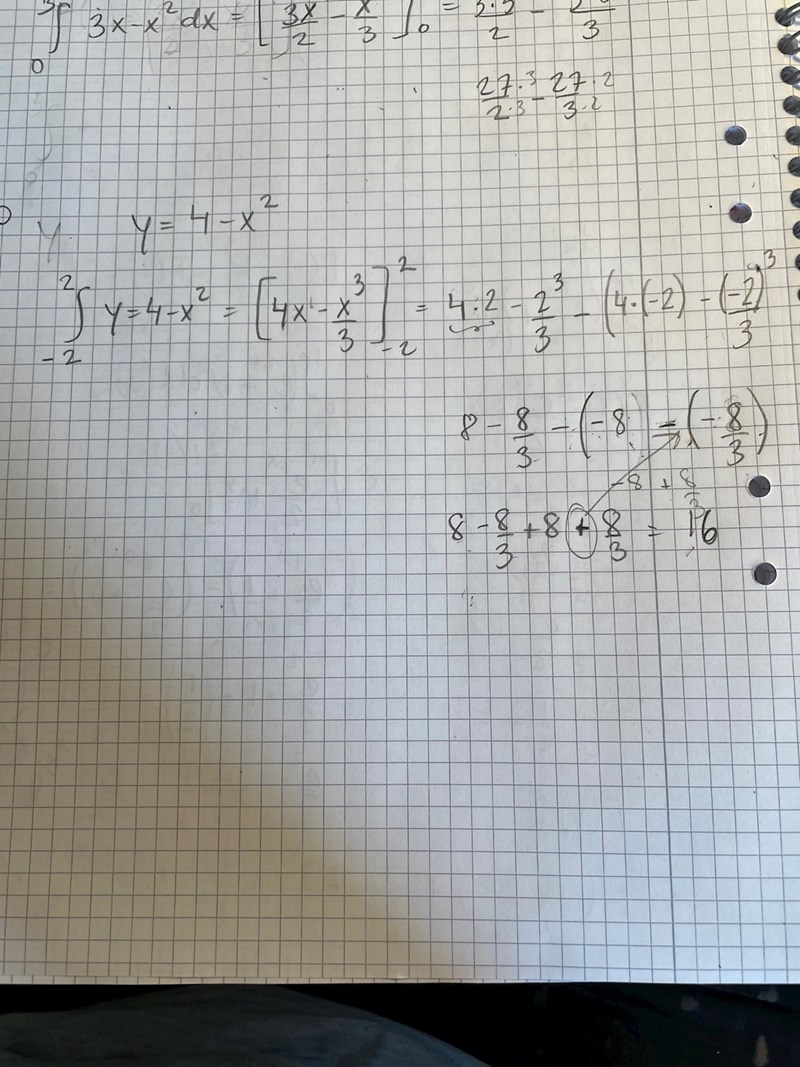 3∫0 3x-x² dx = [3x/2 - x/3]0 = 3·3/2 - /3
27·3/2·3 - 27·2/3·2
y y = 4-x²
2∫-2 y=4-x² = [4x - x³/3]2-2 = 4·2 - 2³/3 - (4·(-2) - (-2)³/3
8 - 8/3 - (-8) = (-8/3)
-8 + 8/3
8 - 8/3 + 8 + 8/3 = 16